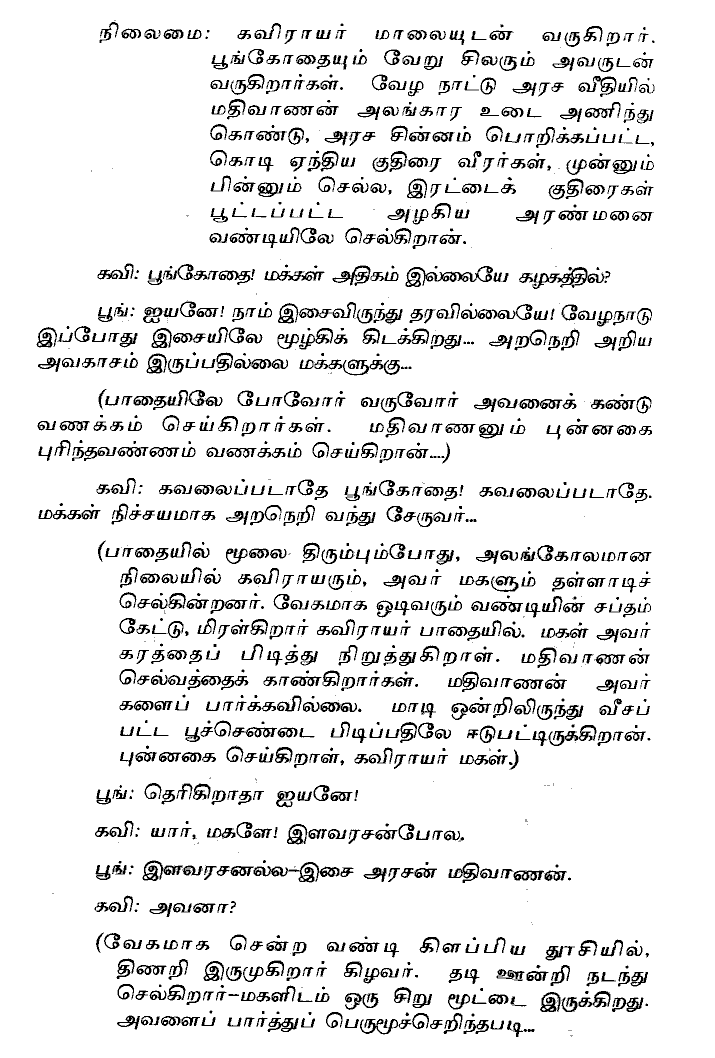 நிலைமை: கவிராயர் மாலையுடன் வருகிறார்.
பூங்கோதையும் வேறு சிலரும் அவருடன்
வருகிறார்கள். வேழ நாட்டு அரச வீதியில்
மதிவாணன் அலங்கார உடை அணிந்து
கொண்டு, அரச சின்னம் பொறிக்கப்பட்ட,
கொடி ஏந்திய குதிரை வீரர்கள், முன்னும்
பின்னும் செல்ல, இரட்டைக் குதிரைகள்
பூட்டப்பட்ட அழகிய அரண்மனை
வண்டியிலே செல்கிறான்.
கவி: பூங்கோதை! மக்கள் அதிகம் இல்லையே கழகத்தில்?
பூங்: ஐயனே! நாம் இசைவிருந்து தரவில்லையே! வேழநாடு
இப்போது இசையிலே மூழ்கிக் கிடக்கிறது... அறநெறி அறிய
அவகாசம் இருப்பதில்லை மக்களுக்கு...
(பாதையிலே போவோர் வருவோர் அவனைக் கண்டு
வணக்கம் செய்கிறார்கள். மதிவாணனும் புன்னகை
புரிந்தவண்ணம் வணக்கம் செய்கிறான்....)
கவி: கவலைப்படாதே பூங்கோதை! கவலைப்படாதே.
மக்கள் நிச்சயமாக அறநெறி வந்து சேருவர்...
(பாதையில் மூலை திரும்பும்போது, அலங்கோலமான
நிலையில் கவிராயரும், அவர் மகளும் தள்ளாடிச்
செல்கின்றனர். வேகமாக ஓடிவரும் வண்டியின் சப்தம்
கேட்டு, மிரள்கிறார் கவிராயர் பாதையில். மகள் அவர்
கரத்தைப் பிடித்து நிறுத்துகிறாள். மதிவாணன்
செல்வத்தைக் காண்கிறார்கள். மதிவாணன் அவர்
களைப் பார்க்கவில்லை. மாடி ஒன்றிலிருந்து வீசப்
பட்ட பூச்செண்டை பிடிப்பதிலே ஈடுபட்டிருக்கிறான்.
புன்னகை செய்கிறாள், கவிராயர் மகள்.)
பூங்: தெரிகிறாதா ஐயனே!
கவி: யார், மகளே! இளவரசன்போல.
பூங்: இளவரசனல்ல-இசை அரசன் மதிவாணன்.
கவி: அவனா?
(வேகமாக சென்ற வண்டி கிளப்பிய தூசியில்,
திணறி இருமுகிறார் கிழவர். தடி ஊன்றி நடந்து
செல்கிறார்-மகளிடம் ஒரு சிறு மூட்டை இருக்கிறது.
அவளைப் பார்த்துப் பெருமூச்செறிந்தபடி...